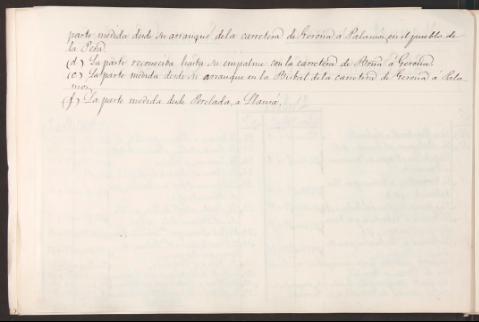 parte medida desde su arranque de la carretera de Gerona á Palamós, en el pueblo de
la Pera.
(d) La parte reconocida hasta su empalme con la carretera de à Gerona.
(e) La parte medida desde su arranque en la Bisbal de la carretera de Gerona á Pala-
mos.
(f) La parte medida desde Perelada, a Llansá.